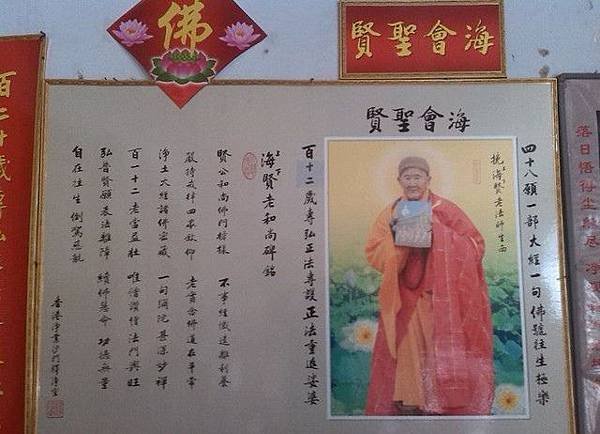 佛
海會聖賢
海會聖賢
四十八願一部大經一句佛號往生極樂
挽海賢老法師生西
百十二歲專弘正法專護正法重返娑婆
上海下賢老和尚碑銘
賢公和尚佛門榜樣
不事經懺遠離利養
嚴持戒律四眾欽仰
老實念佛道在平常
淨土大經諸佛密藏
一句彌陀甚深妙禪
百一十二老當益壯
唯僧讚僧法門興旺
弘普賢願表法離障
續佛慧命功德無量
自在往生倒駕慈航
香港淨業沙門釋淨空
百十二歲專弘
落日悟得塵